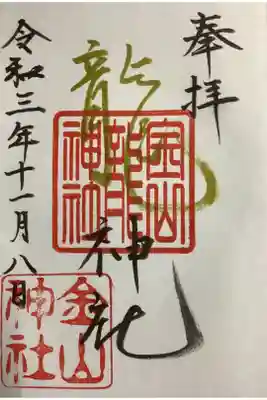 奉拝
龍神社
令和三年十一月八日
神社
金山
神社